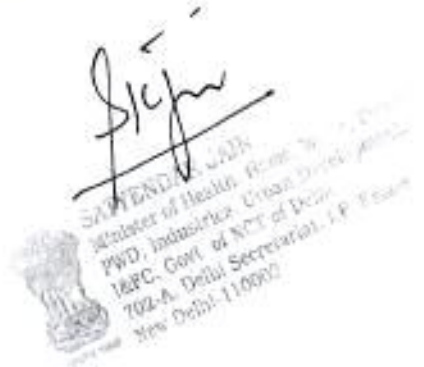 SATYENDAR JAIN
Minister of Health, Home
PWD, Industries, Urban Development
I&FC, Govt. of NCT of Delhi
702-A, Delhi Secretariat, I.P. Estate
New Delhi-110002